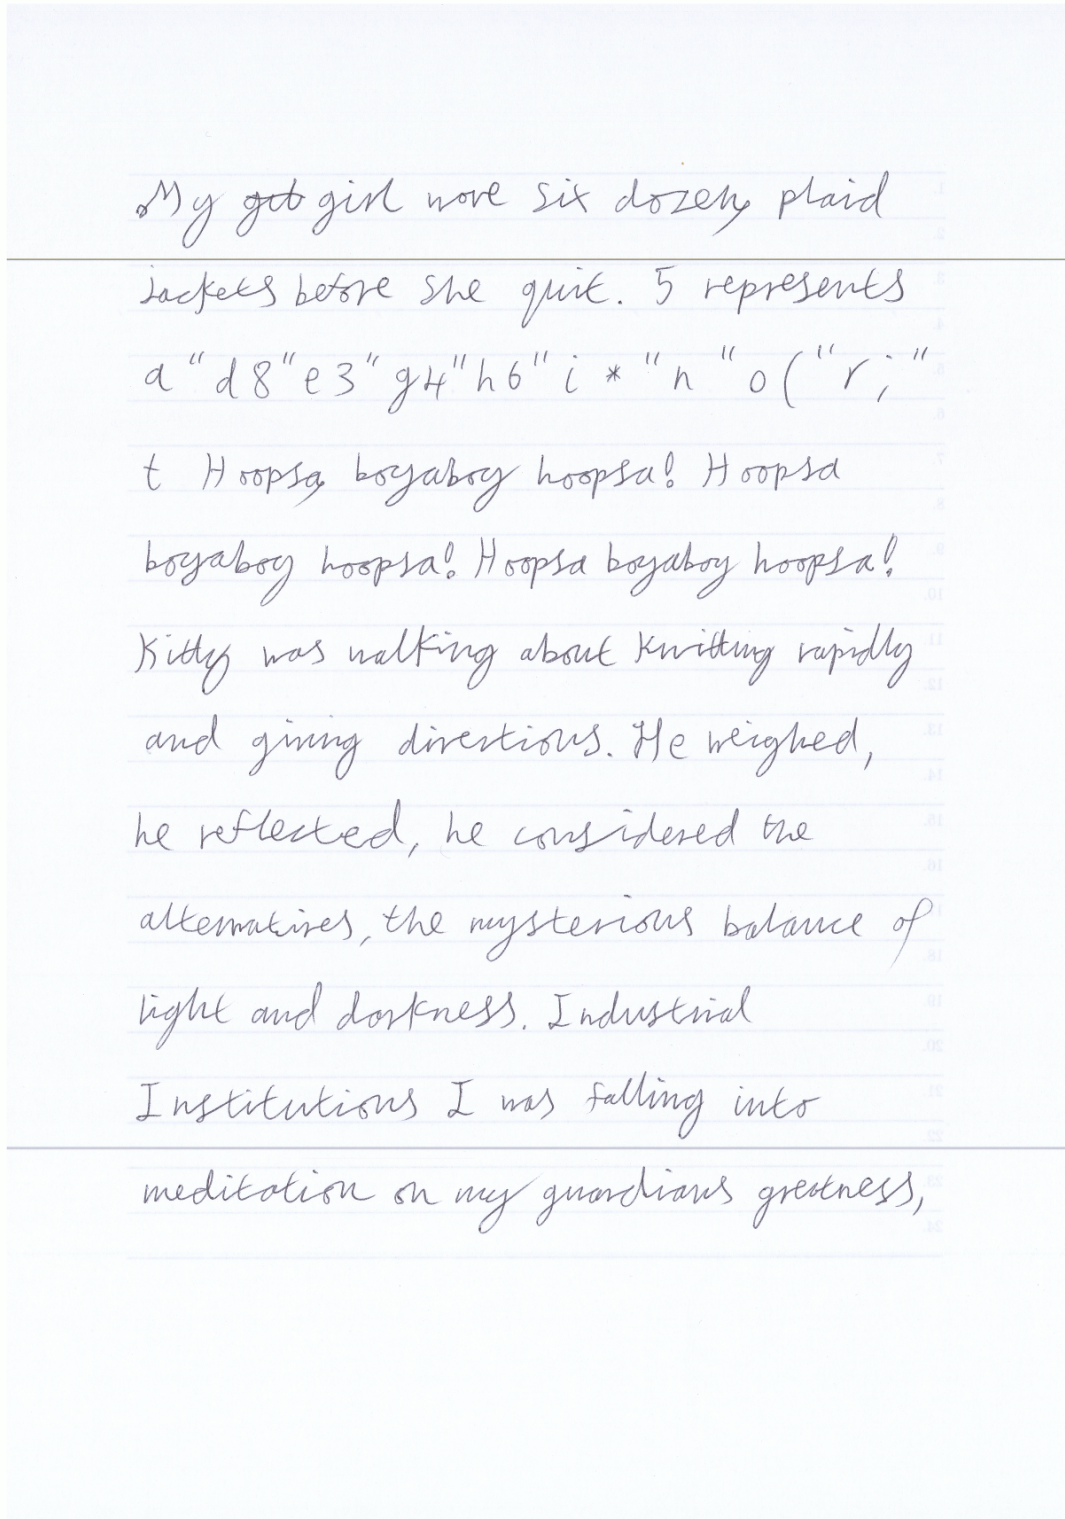 My got girl wore six dozen plaid
jackets before she quit. 5 represents
a "d8"e3"g4"h6"i*"n "o("r;"
t Hoopsa boyaboy hoopsa! Hoopsa
boyaboy hoopsa! Hoopsa boyaboy hoopsa!
Kitty was walking about Knitting rapidly
and giving directions. He weighed,
he reflected, he considered the
alternatives, the mysterious balance of
light and darkness. Industrial
Institutions I was falling into
meditation on my guardians greatness,